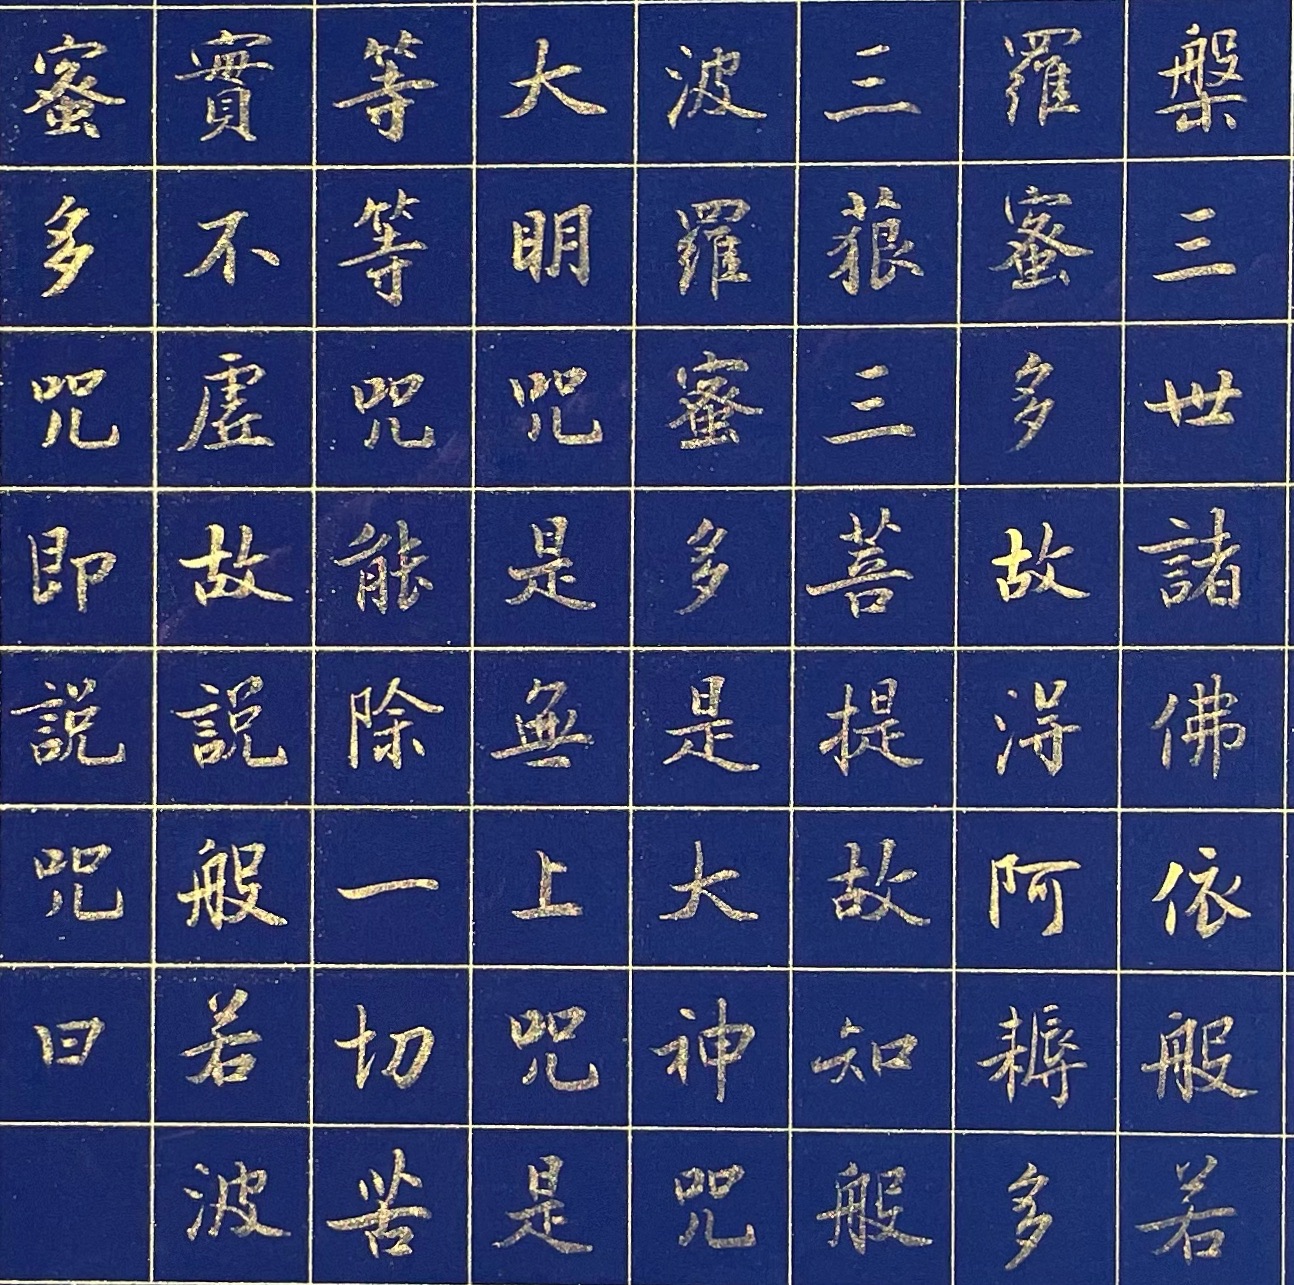 槃三世諸佛依般若
羅蜜多故得阿耨多
三藐三菩提故知般
波羅蜜多是大神咒
大明咒是無上咒是
等等咒能除一切苦
實不虛故說般若波
蜜多咒即說咒曰